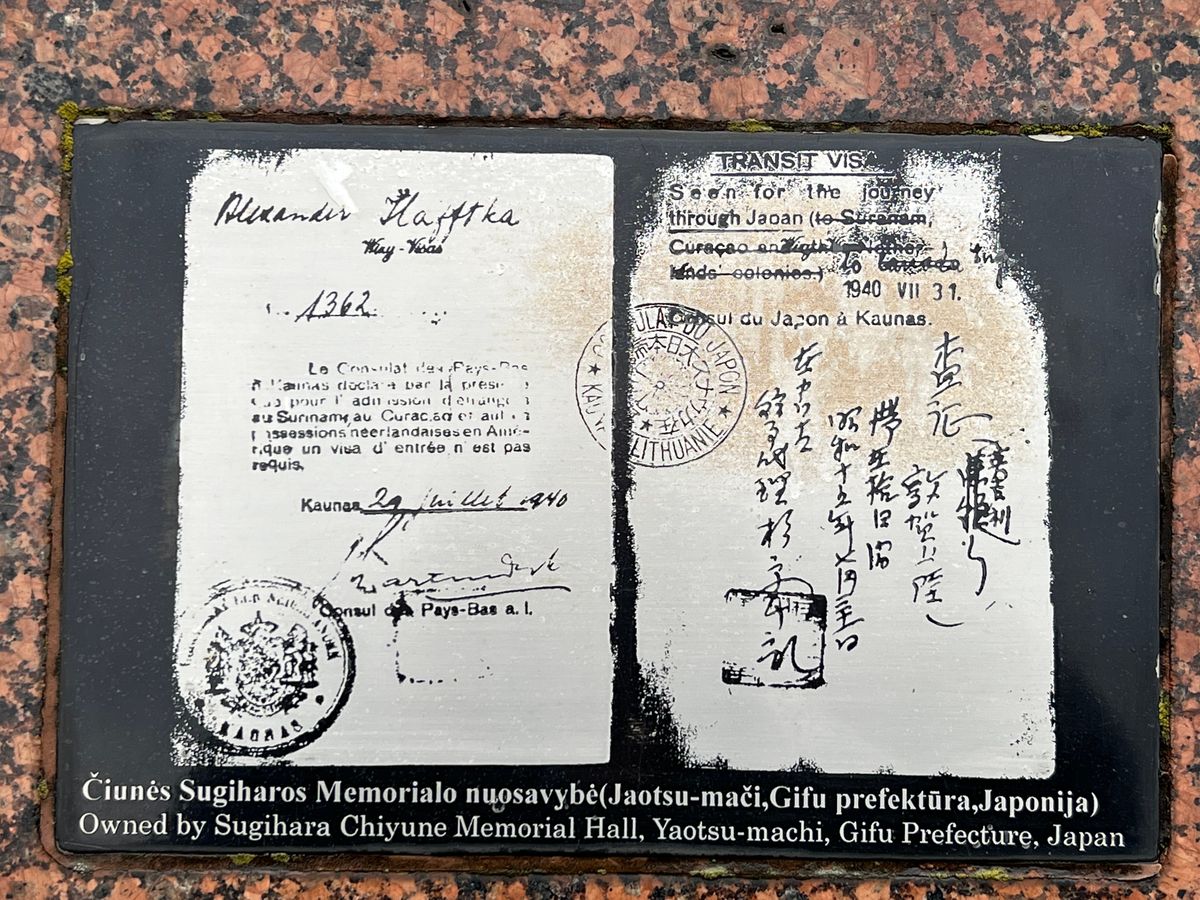 Alexander Hafftka
1362
Le Consulat des Pays-Bas
à Kaunas déclare par la présen
que pour l'admission d'étrangers
au Surinam, au Curaçao et autres
possessions néerlandaises en Amé-
rique un visa d'entrée n'est pas
requis.
Kaunas, 29 Juillet 1940
Consul des Pays-Bas a. i.
KAUNAS
TRANSIT VISA
Seen for the journey
through Japan (to Suranam,
Curaçao and Nether-
lands colonies.) to
1940 VII 31.
Consul du Japon à Kaunas.
CONSULAT DU JAPON
KAUNAS LITHUANIE
敦賀上陸
滞在拾日間
昭和十五年七月三十一日
領事代理 杉原千畝
Čiunės Sugiharos Memorialo nuosavybė(Jaotsu-mači,Gifu prefektūra,Japonija)
Owned by Sugihara Chiyune Memorial Hall, Yaotsu-machi, Gifu Prefecture, Japan